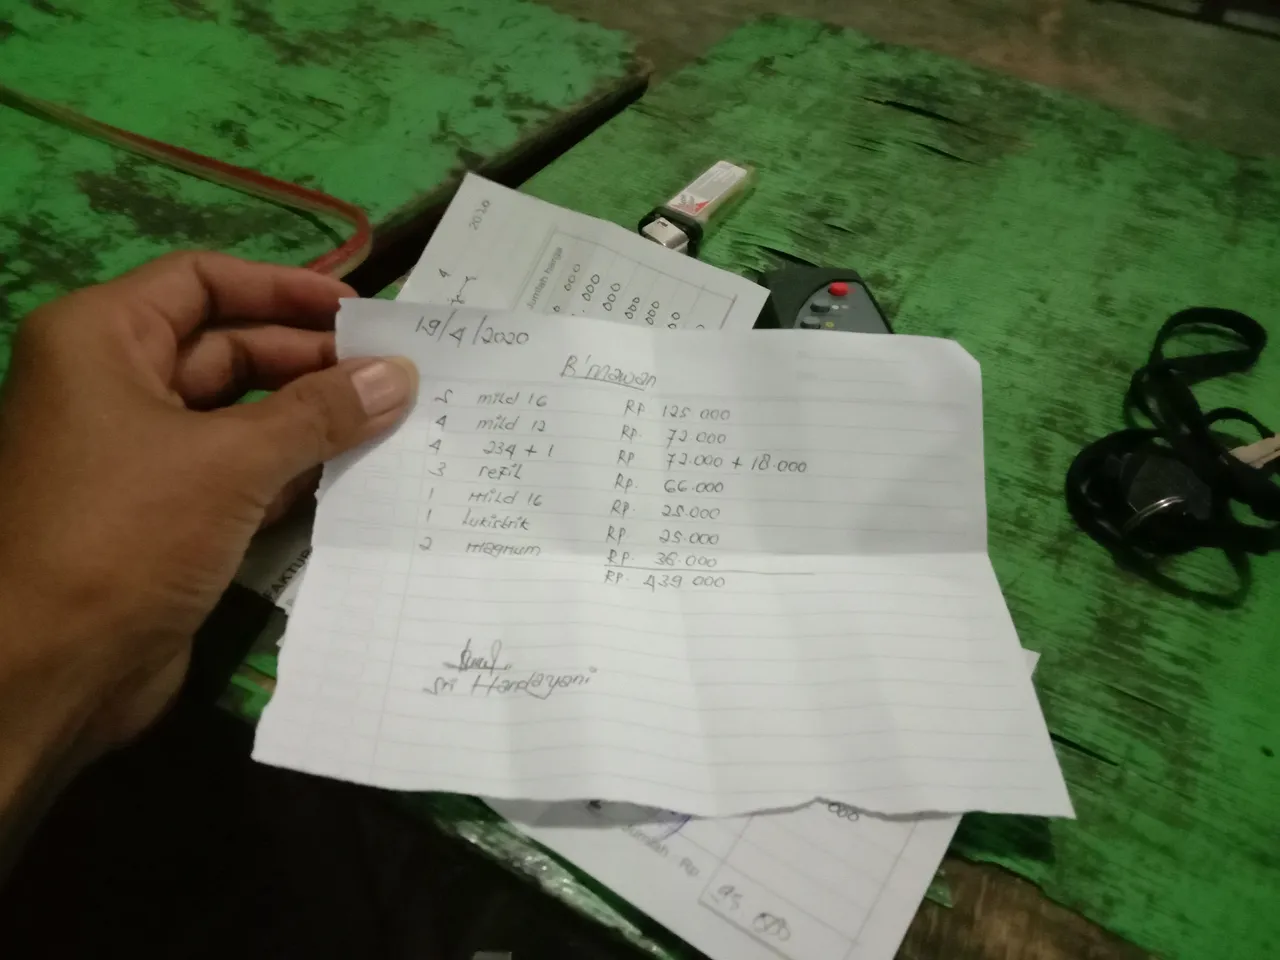 19/4/2020
B'mawan
5 mild 16 RP 125 000
4 mild 12 RP. 72.000
4 234 + 1 RP 72.000 + 18.000
3 refil RP. 66.000
1 mild 16 RP. 25.000
1 lukistrik RP 25.000
2 magnum RP. 36.000
RP. 439 000
Sri Handayani
2020
4
Jumlah Harga
000
000
000
000
000
FAKTUR
000
Jumlah Rp